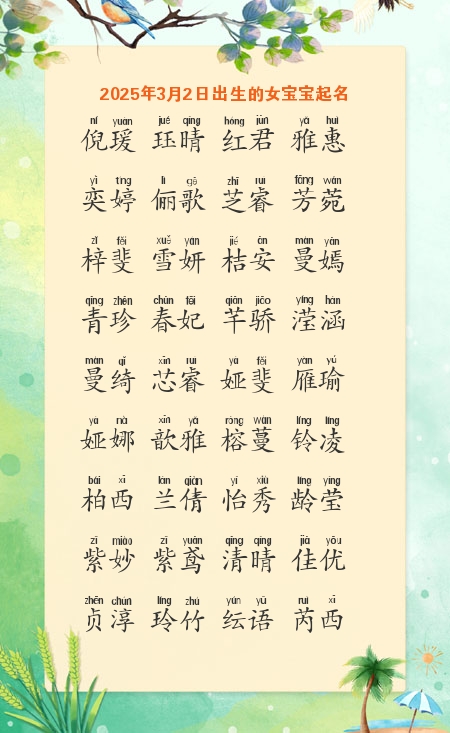 2025年3月2日出生的女宝宝起名
ní yuàn jué qíng hóng jūn yǎ huì
倪瑗 珏晴 红君 雅惠
yì tíng lì gē zhī ruì fāng wǎn
奕婷 俪歌 芝睿 芳菀
zǐ fěi xuě yán jié ān màn yān
梓斐 雪妍 桔安 曼嫣
qīng zhēn chūn fēi qiān jiāo yíng hán
青珍 春妃 芊骄 滢涵
màn qǐ xīn ruì yà fěi yàn yú
曼绮 芯睿 娅斐 雁瑜
yà nà xīn yǎ róng wàn líng líng
娅娜 歆雅 榕蔓 铃凌
bǎi xī lán qiàn yí xiù líng yíng
柏西 兰倩 怡秀 龄莹
zǐ miào zǐ yuān qīng qíng jiā yōu
紫妙 紫鸢 清晴 佳优
zhēn chún líng zhú yún yǔ ruì xī
贞淳 玲竹 纭语 芮西